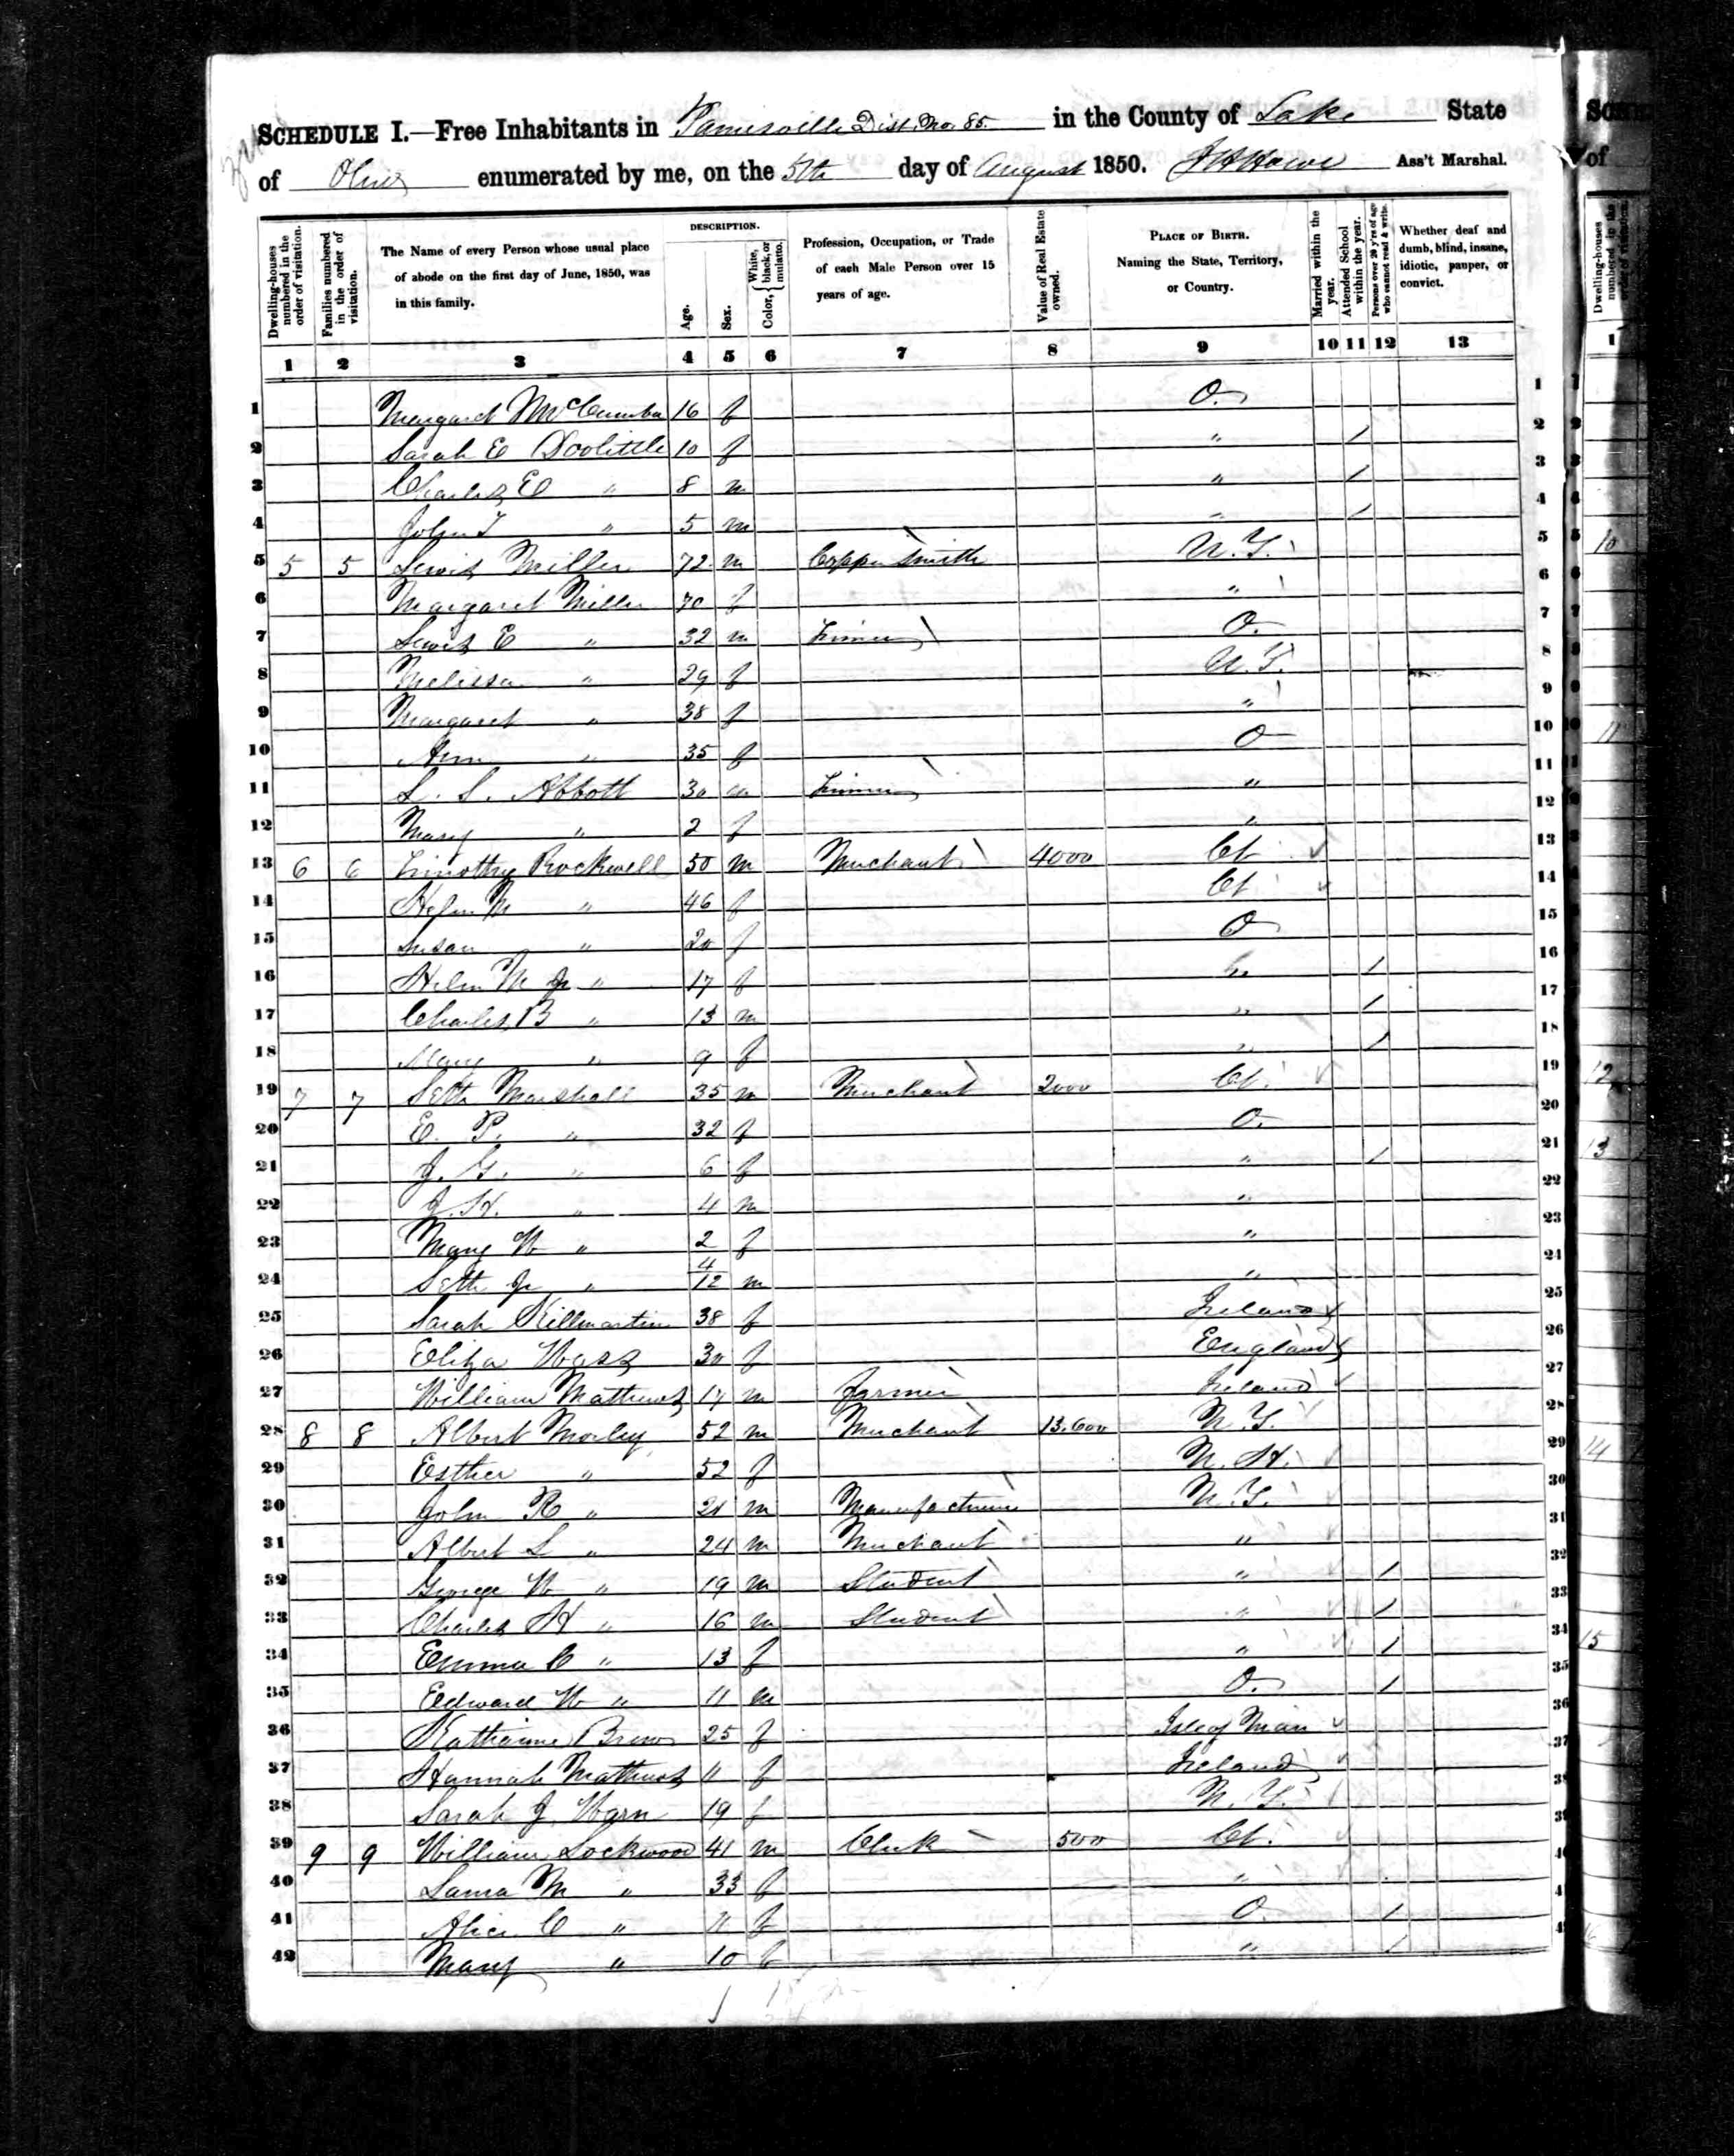 SCHEDULE I.—Free Inhabitants in Painesville Dist. No. 85. in the County of Lake State
of Ohio enumerated by me, on the 5th day of August 1850. Ass't Marshal.
Dwelling-houses numbered in the order of visitation.
Families numbered in the order of visitation.
The Name of every Person whose usual place of abode on the first day of June, 1850, was in this family.
DESCRIPTION.
Age.
Sex.
Color, { White, black, or mulatto.
Profession, Occupation, or Trade of each Male Person over 15 years of age.
Value of Real Estate owned.
PLACE OF BIRTH. Naming the State, Territory, or Country.
Married within the year.
Attended School within the year.
Persons over 20 y'rs of age who cannot read & write.
Whether deaf and dumb, blind, insane, idiotic, pauper, or convict.
1 2 3 4 5 6 7 8 9 10 11 12 13
1 Margaret McCumber 16 f O. 1
2 Sarah E Doolittle 10 f " / 2
3 Charles E " 8 m " / 3
4 John T " 5 m " / 4
5 5 5 Lewis Miller 72 m Coppersmith N.Y. 5
6 Margaret Miller 70 f " 6
7 Lewis E " 32 m Tinner O. 7
8 Melissa " 29 f N.Y. 8
9 Margaret " 38 f " 9
10 Ann " 35 f O 10
11 L. S. Abbott 30 m Tinner " 11
12 Mary " 2 f " 12
13 6 6 Timothy Rockwell 50 m Merchant 4000 Ct 13
14 Helen M " 46 f Ct 14
15 Susan " 20 f O 15
16 Helen M Jr " 17 f " / 16
17 Charles B " 13 m " / 17
18 Mary " 9 f " / 18
19 7 7 Seth Marshall 35 m Merchant 2000 Ct. 19
20 E. P. " 32 f O. 20
21 J. G. " 6 f " / 21
22 J. H. " 4 m " 22
23 Mary W " 2 f " 23
24 Seth Jr " 4/12 m " 24
25 Sarah Killmartin 38 f Ireland 25
26 Eliza Wass 30 f England 26
27 William Mathews 17 m Farmer Ireland 27
28 8 8 Albert Morley 52 m Merchant 13,600 N.Y. 28
29 Esther " 52 f N.H. 29
30 John R " 21 m Manufacturer N.Y. 30
31 Albert L " 24 m Merchant " 31
32 George W " 19 m Student " / 32
33 Charles H " 16 m Student " / 33
34 Emma C " 13 f " / 34
35 Edward W " 11 m O. / 35
36 Katharine Brew 25 f Isle of Man 36
37 Hannah Mathews 11 f Ireland 37
38 Sarah J. Warn 19 f N.Y. 38
39 9 9 William Lockwood 41 m Clerk 500 Ct. 39
40 Laura M " 33 f " 40
41 Alice C " 11 f O. / 41
42 Mary " 10 f " /